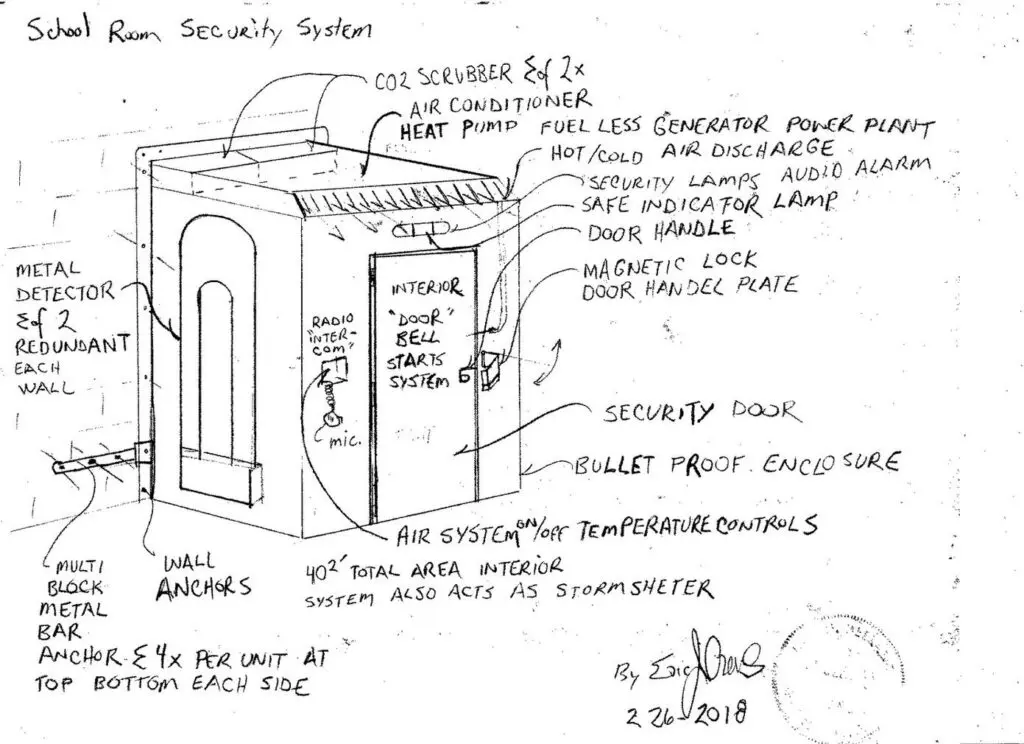 School Room Security System
CO2 SCRUBBER Σ of 2x
AIR CONDITIONER
HEAT PUMP FUEL LESS GENERATOR POWER PLANT
HOT/COLD AIR DISCHARGE
SECURITY LAMPS AUDIO ALARM
SAFE INDICATOR LAMP
DOOR HANDLE
MAGNETIC LOCK
DOOR HANDEL PLATE
METAL
DETECTOR
Σ of 2
REDUNDANT
EACH
WALL
RADIO
"INTER-
COM"
mic.
INTERIOR
"DOOR"
BELL
STARTS
SYSTEM
SECURITY DOOR
BULLET PROOF ENCLOSURE
AIR SYSTEM ON/OFF TEMPERATURE CONTROLS
40²' TOTAL AREA INTERIOR
SYSTEM ALSO ACTS AS STORM SHETER
WALL
ANCHORS
MULTI
BLOCK
METAL
BAR
ANCHOR Σ 4x PER UNIT AT
TOP BOTTOM EACH SIDE
By Eric J
2 26-2018